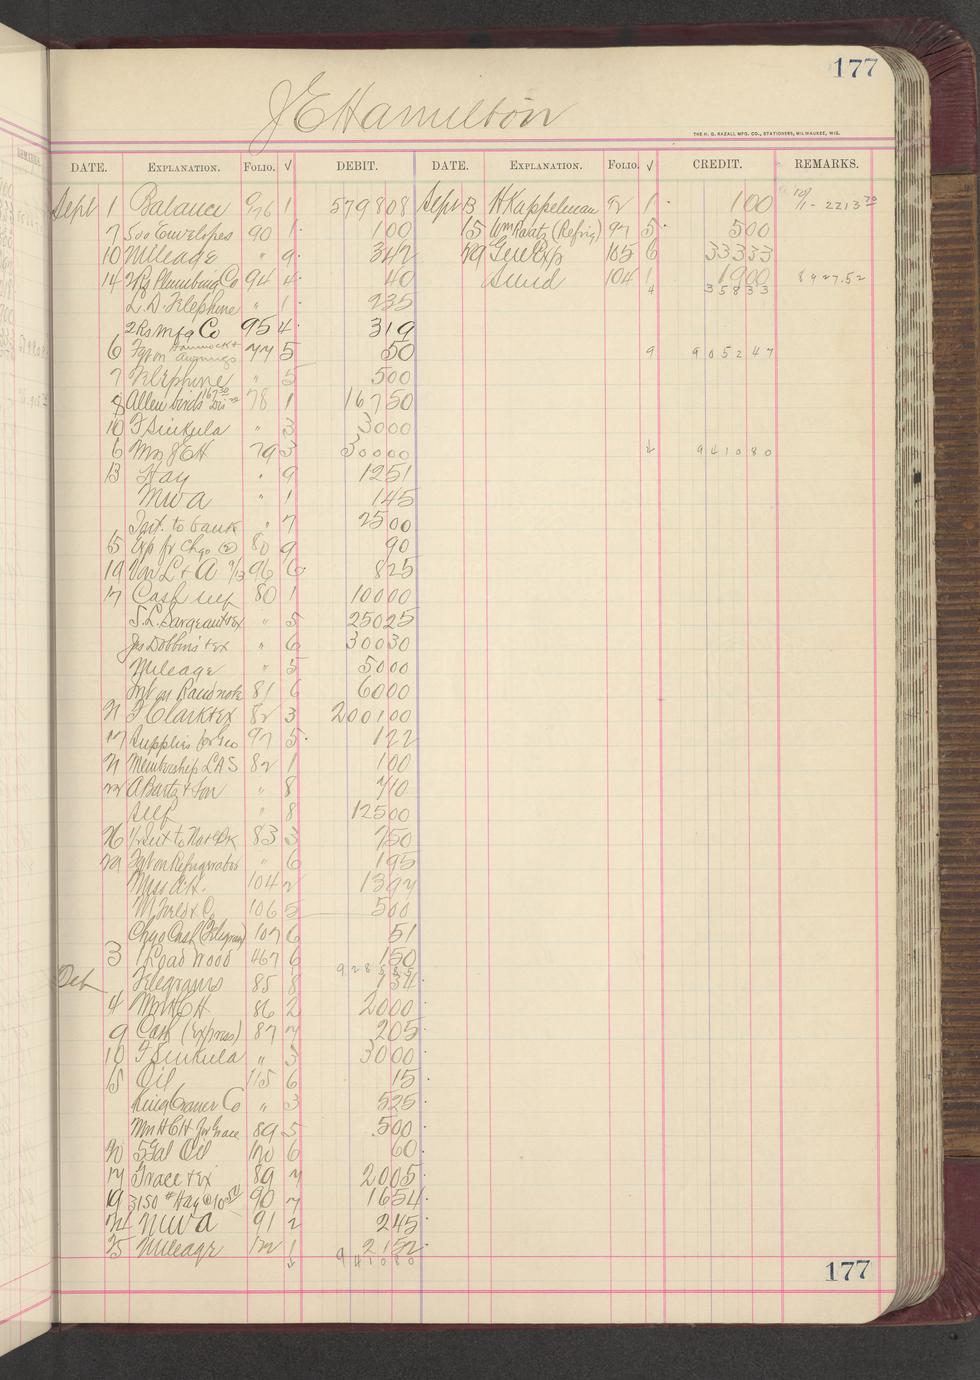 177
J E Hamilton
THE H. G. RAZALL MFG. CO., STATIONERS, MILWAUKEE, WIS.
DATE. EXPLANATION. FOLIO. √ DEBIT. DATE. EXPLANATION. FOLIO. √ CREDIT. REMARKS.
Sept 1 Balance 1 579808 Sept 13 H Kappelman 92 1 100
7 500 Envelopes 90 1 100 15 Wm Bartz (Refrig) 97 5 500
10 Mileage " 9 342 29 Gen Exp 105 6 33333
14 2 Rs Plumbing Co 94 4 40 104 1 1900 8927.52
L.D. Telephone " 1 235 4 35833
2 Rs Mfg Co 95 4 319
6 Fgt on Hammock + Awnings 77 5 50 9 905247
7 Telephone " 5 500
8 Allen 78 1 16750
10 F Sinkula " 3 3000
6 Mrs J E H 79 3 30000 941080
13 Hay " 9 1251
M W A " 1 145
Int. to bank " 7 2500
15 Exp fr Chgo 80 9 90
19 96 6 825
17 Cash self 80 1 10000
S.L. Sargeant + ex " 5 25025
Jas Dobbins + ex " 6 30030
Mileage " 5 5000
Int on Rand note 81 6 6000
21 F Clark + ex 82 3 200100
17 Supplies for Geo 97 5 122
21 Membership L A S 82 1 100
22 A Bartz + Son " 8 710
Self " 8 12500
26 83 3 750
29 Fgt on Refrigerator " 6 195
Miss A.H. 104 2 1392
106 5 500
Chgo Cash (Telegram) 107 6 51
3 1 Load Wood 467 6 150
928585
Oct Telegrams 85 8 134
4 Mrs H C H 86 2 2000
9 Cash (Express) 87 7 205
10 F Sinkula " 3 3000
15 Oil 115 6 15
King Craner Co " 3 525
Mrs H C H for Grace 89 5 500
20 5 Gal Oil 120 6 60
17 Grace + ex 89 7 2005
19 3150 # Hay @ 10 50 90 7 1654
24 M W A 91 2 245
25 Mileage 122 1 2152
941080
177